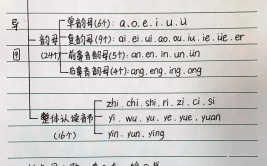 导
图
韵母
(24个)
单韵母(6个): a.o.e.i.u.ü
复韵母(9个): ai.ei.ui.ao.ou.iu.ie.üe.er
前鼻音韵母(5个): an.en.in.un.ün
后鼻音韵母(4个): ang.eng.ing.ong
整体认读音节
(16个)
zhi.chi.shi.ri.zi.ci.si
yi.wu.yu.ye.yue.yuan
yin.yun.ying